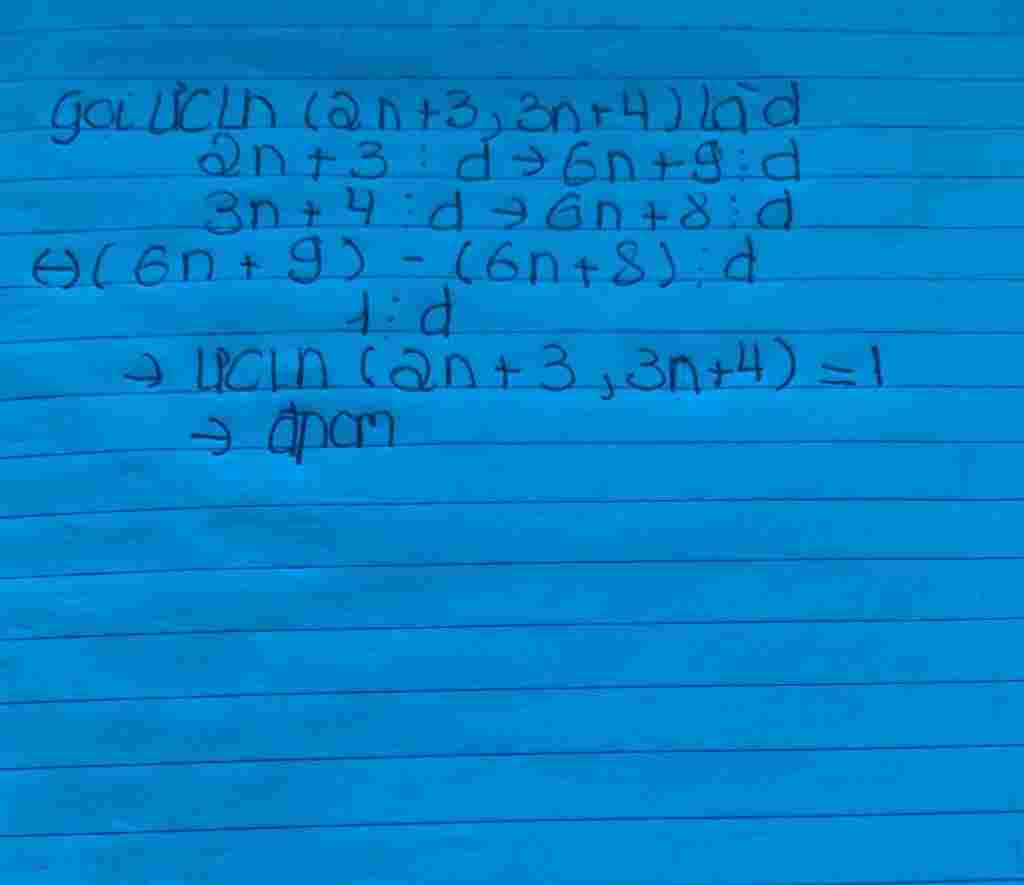 Gọi ƯCLN (2n+3, 3n+4) là d
2n + 3 ⋮ d → 6n + 9 ⋮ d
3n + 4 ⋮ d → 6n + 8 ⋮ d
↔ (6n + 9) - (6n + 8) ⋮ d
1 ⋮ d
→ ƯCLN (2n + 3, 3n+4) = 1
→ đpcm